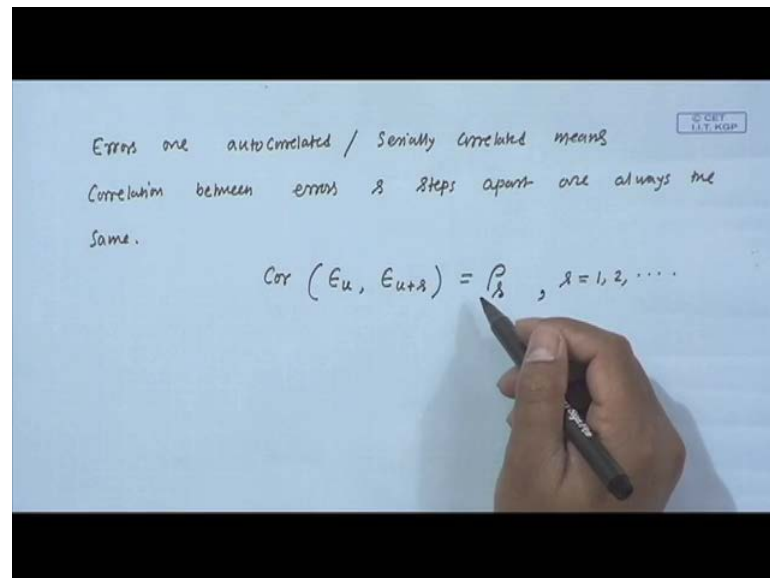 © CET
I.I.T. KGP
Errors are autocorrelated / Serially correlated means
Correlation between errors s steps apart are always the
Same.
Cor ( ϵu, ϵu+s ) = ρs , s = 1, 2, ....